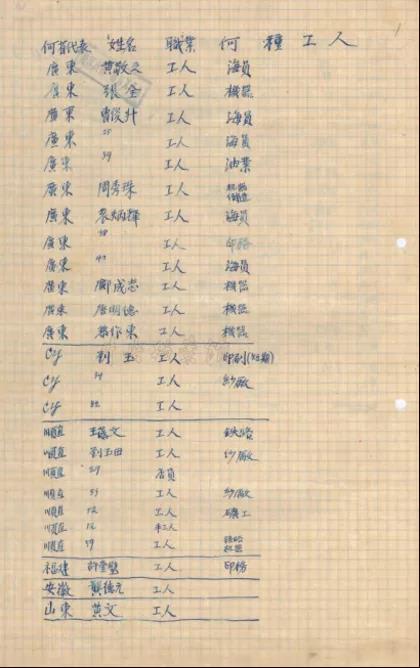 何省代表 姓名 職業 何種工人
廣東 黄敬文 工人 海員
廣東 張金 工人 機器
廣東 曹俊升 工人 海員
廣東 工人 海員
廣東 39 工人 油業
廣東 周秀珠 工人
廣東 袁炳輝 工人 海員
廣東 工人 印務
廣東 工人 海員
廣東 鄭成忠 工人 機器
廣東 唐明德 工人 機器
廣東 工人 機器
CY 劉玉 工人 印刷
CY 工人 紗廠
CY 工人
順直 王藻文 工人 鉄路
順直 劉玉田 工人 紗廠
順直 29 店員
順直 工人 紗廠
順直 12 工人 礦工
順直 12 手工人
順直 工人
福建 工人 印務
安徽 龔德元 工人
山東 黄文 工人